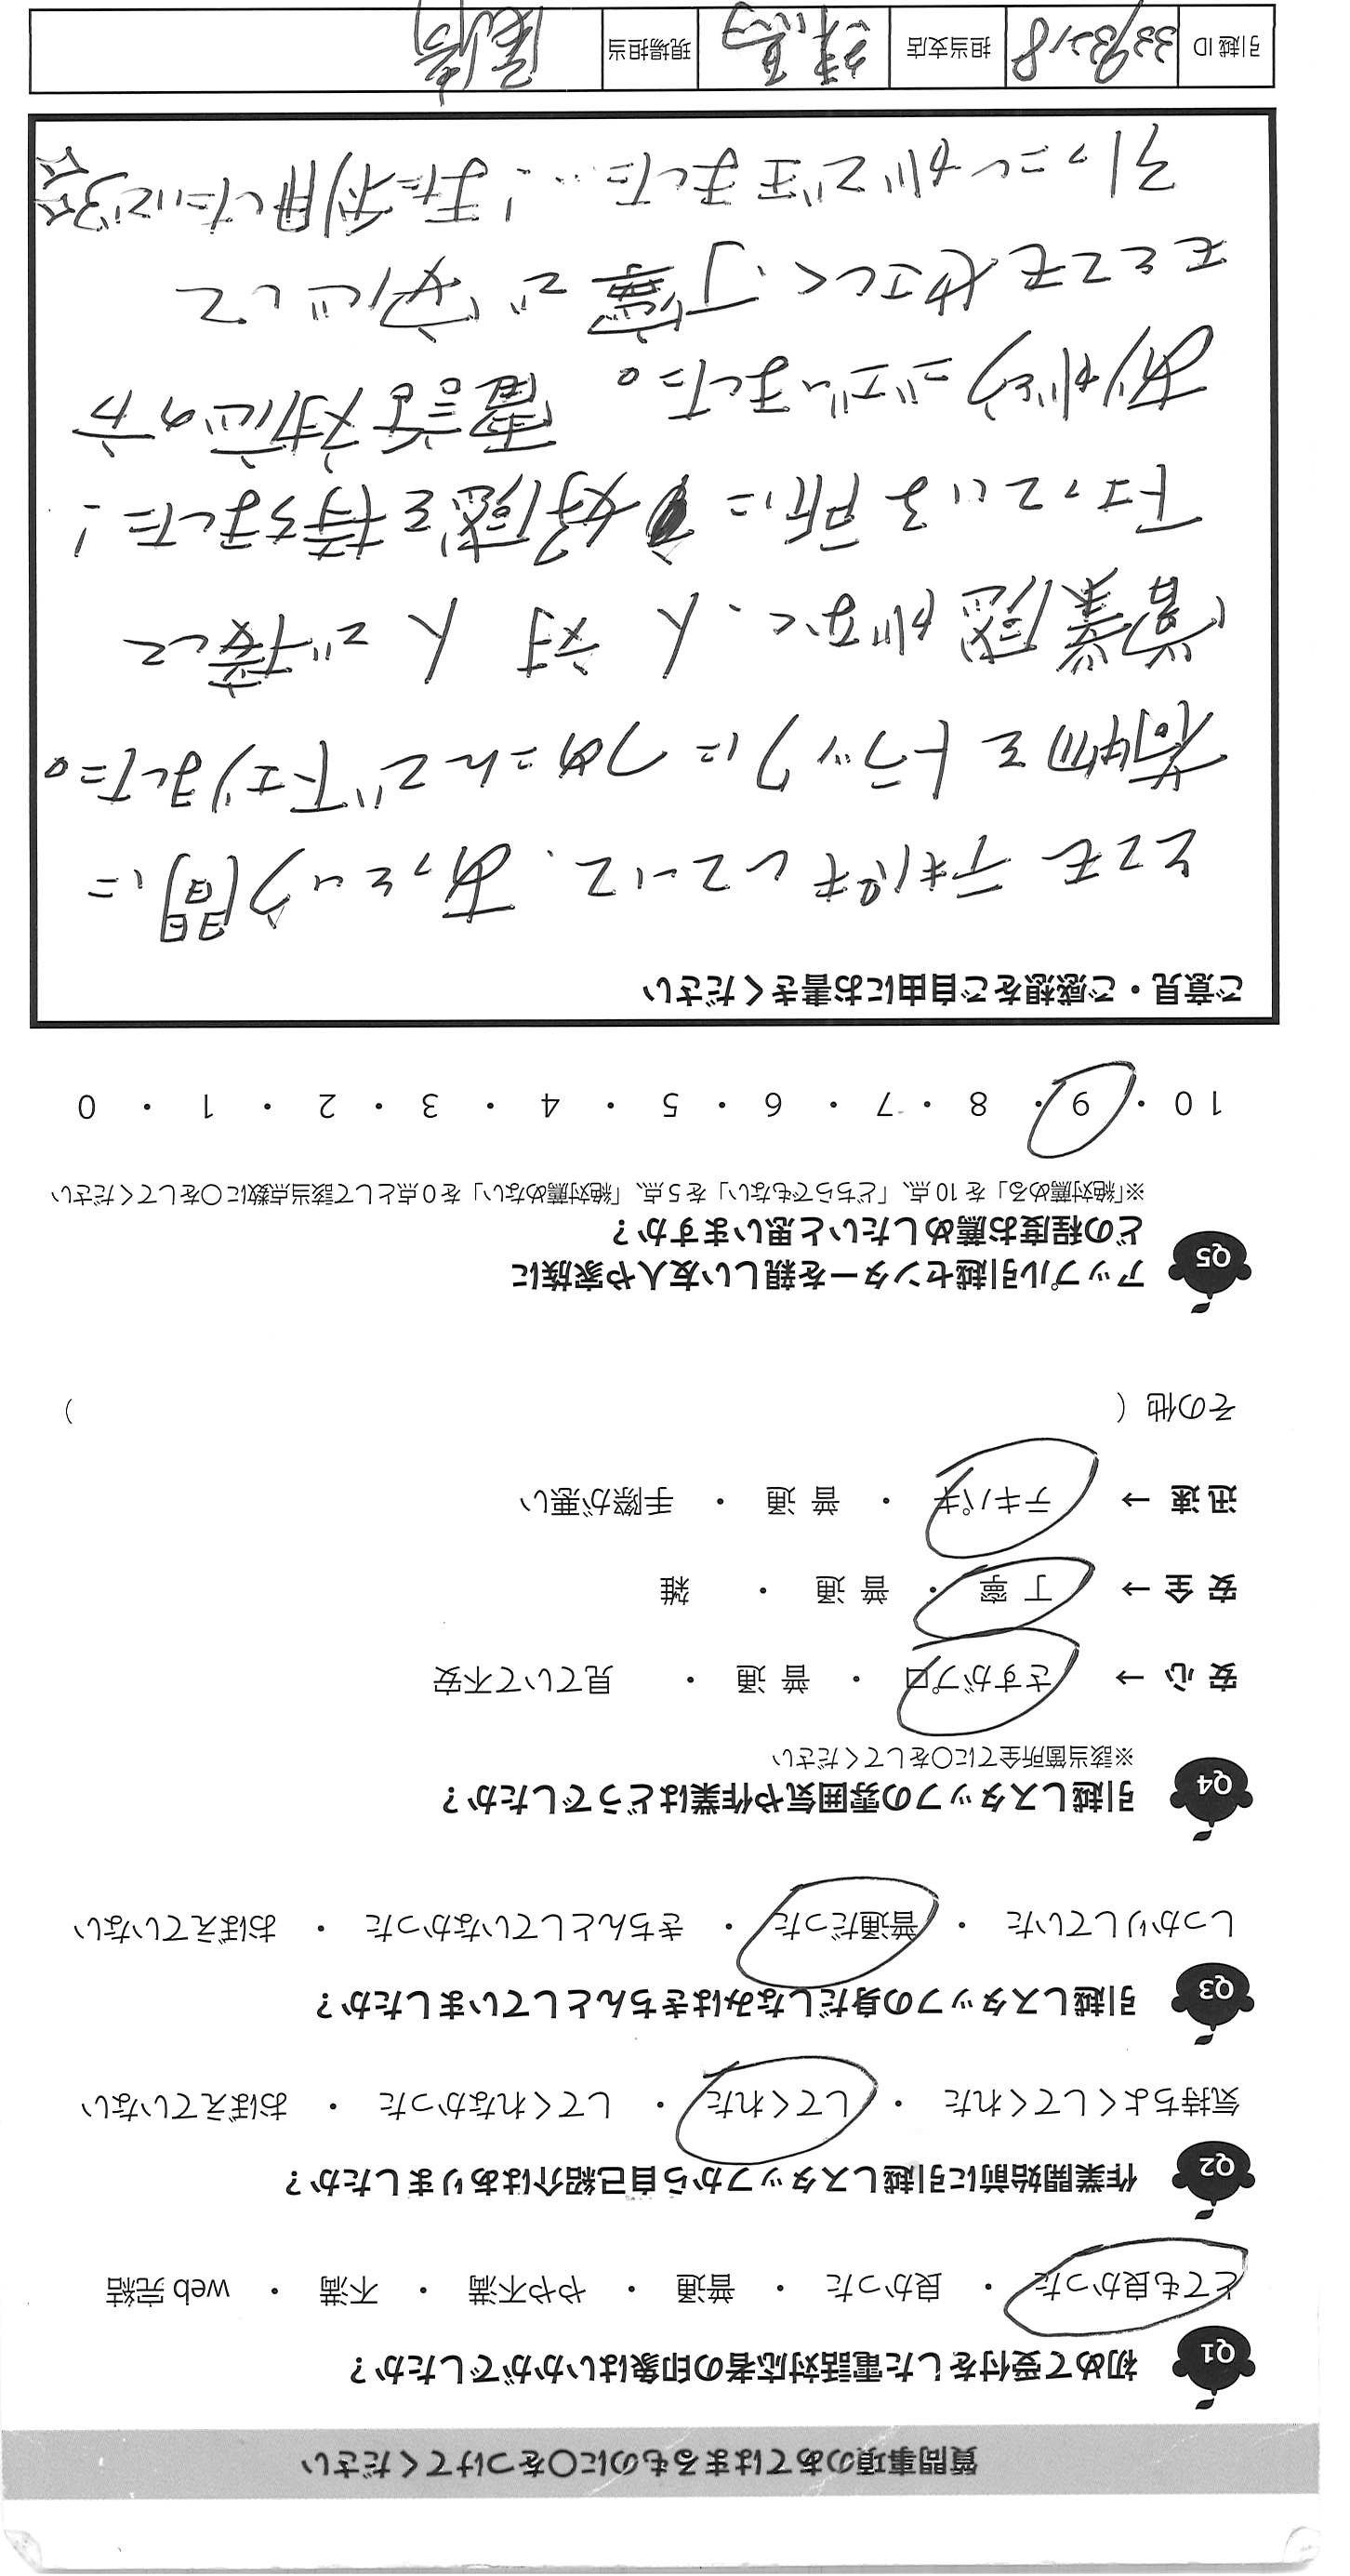 質問事項のあてはまるものに○をつけてください
Q1 初めて受付をした電話対応者の印象はいかがでしたか？
とても良かった ・ 良かった ・ 普通 ・ やや不満 ・ 不満 ・ web 完結
Q2 作業開始前に引越しスタッフから自己紹介はありましたか？
気持ちよくしてくれた ・ してくれた ・ してくれなかった ・ おぼえていない
Q3 引越しスタッフの身だしなみはきちんとしていましたか？
しっかりしていた ・ 普通だった ・ きちんとしていなかった ・ おぼえていない
Q4 引越しスタッフの雰囲気や作業はどうでしたか？
※該当箇所全てに○をしてください
安 心 → さすがプロ ・ 普 通 ・ 見ていて不安
安 全 → 丁 寧 ・ 普 通 ・ 雑
迅 速 → テキパキ ・ 普 通 ・ 手際が悪い
その他（ ）
Q5 アップル引越センターを親しい友人や家族に
どの程度お薦めしたいと思いますか？
※「絶対薦める」を 10 点、「どちらでもない」を 5 点、「絶対薦めない」を 0 点として該当点数に○をしてください
10 ・ 9 ・ 8 ・ 7 ・ 6 ・ 5 ・ 4 ・ 3 ・ 2 ・ 1 ・ 0
ご意見・ご感想をご自由にお書きください
とてもテキパキしていて、あっという間に
荷物をトラックにつめこんで下さいました。
営業感がなく、人対人で接して
下さっている所に好感を持ちました！
ありがとうございました。電話対応の方
もとても優しく、丁寧で安心して
引っこしができました…！また利用したいです
引越 ID 担当支店 現場担当